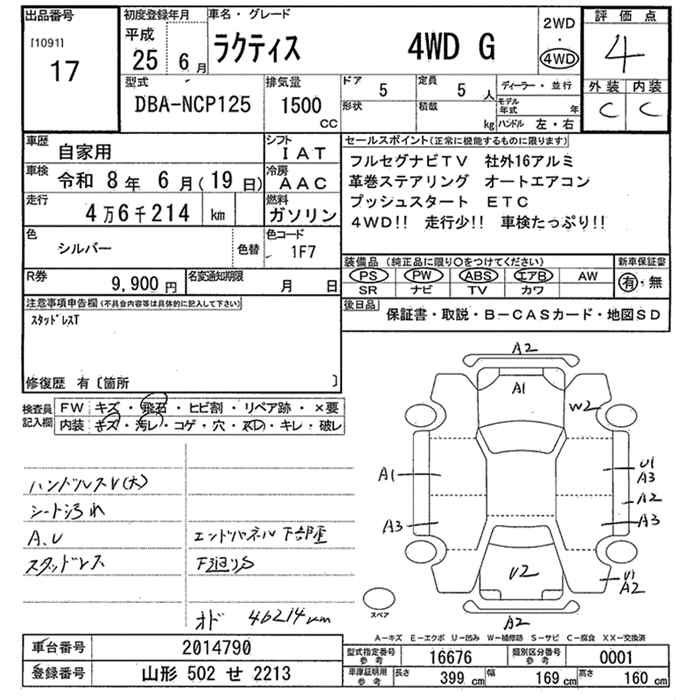 出品番号
[1091]
17
初度登録年月
平成
25 6月
車名・グレード
ラクティス 4WD G
2WD
・
4WD
評価点
4
外装 内装
C C
型式
DBA-NCP125
排気量
1500
CC
ドア
5
形状
定員
5人
積載
kg
ディーラー・並行
モデル年式 年
ハンドル 左・右
車歴
自家用
シフト
IAT
車検
令和 8年 6月(19日)
冷房
AAC
走行
4万6千214 km
燃料
ガソリン
色
シルバー
色替
色コード
1F7
R券
9,900円
名変通知期限
月 日
セールスポイント(正常に機能するものに限ります)
フルセグナビTV 社外16アルミ
革巻ステアリング オートエアコン
プッシュスタート ETC
4WD!! 走行少!! 車検たっぷり!!
装備品(純正品に限り○をつけてください)
PS PW ABS エアB AW
SR ナビ TV カワ
新車保証書
有・無
後日品
保証書・取説・B-CASカード・地図SD
注意事項申告欄(不具合内容等は具体的に記入して下さい)
スタッドレスT
修復歴 有〔箇所 〕
検査員
記入欄
FW キズ・飛石・ヒビ割・リペア跡・×要
内装 キズ・汚レ・コゲ・穴・スレ・キレ・破レ
ハンドルスレ(大)
シート汚れ
A.U
スタッドレス
エンドパネル下部歪
下廻りS
オド 46214km
A2
A1
W2
A1
A3
U1
A3
A2
A3
U2
U1
A2
A2
スペア
A-キズ E-エクボ U-凹み W-補修跡 S-サビ C-腐食 XX-交換済
車台番号 2014790
登録番号 山形 502 せ 2213
型式指定番号
参考
16676
類別区分番号
参考
0001
車庫証明用
参考
長さ 399 cm
幅 169 cm
高さ 160 cm